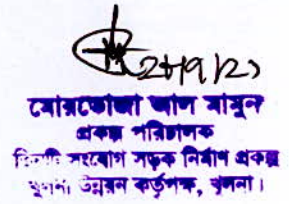 ২৮/৭/২১
মোরতোজা আল মামুন
প্রকল্প পরিচালক
তিনটি সংযোগ সড়ক নির্মাণ প্রকল্প
খুলনা উন্নয়ন কর্তৃপক্ষ, খুলনা।